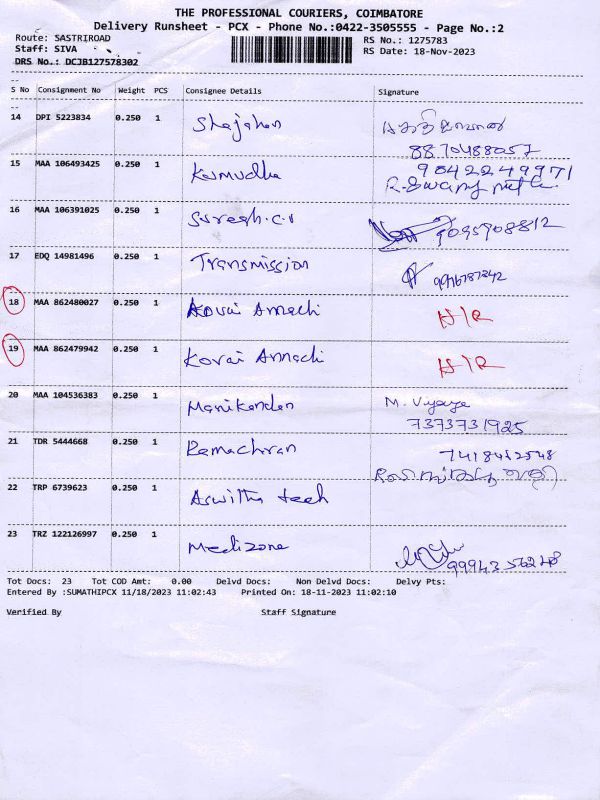 THE PROFESSIONAL COURIERS, COIMBATORE
Delivery Runsheet - PCX - Phone No.:0422-3505555 - Page No.:2
Route: SASTRIROAD
RS No.: 1275783
Staff: SIVA
RS Date: 18-Nov-2023
DRS No.: DCJB127578302
S No Consignment No Weight PCS Consignee Details Signature
14 DPI 5223834 0.250 1 Shajahan
8870488057
15 MAA 106493425 0.250 1 Kumudha 9042249971
16 MAA 106391025 0.250 1 Suresh.c.v 9095908812
17 EDQ 14981496 0.250 1 Transmission
18 MAA 862480027 0.250 1 Kovai Annachi H/R
19 MAA 862479942 0.250 1 Kovai Annachi H/R
20 MAA 104536383 0.250 1 Manikandan M. Vijaya
7373731925
21 TDR 5444668 0.250 1 Ramachran 7418452548
22 TRP 6739623 0.250 1 Aswitha tech
23 TRZ 122126997 0.250 1 Medizone 9994356248
Tot Docs: 23 Tot COD Amt: 0.00 Delvd Docs: Non Delvd Docs: Delvy Pts:
Entered By :SUMATHIPCX 11/18/2023 11:02:43 Printed On: 18-11-2023 11:02:10
Verified By Staff Signature